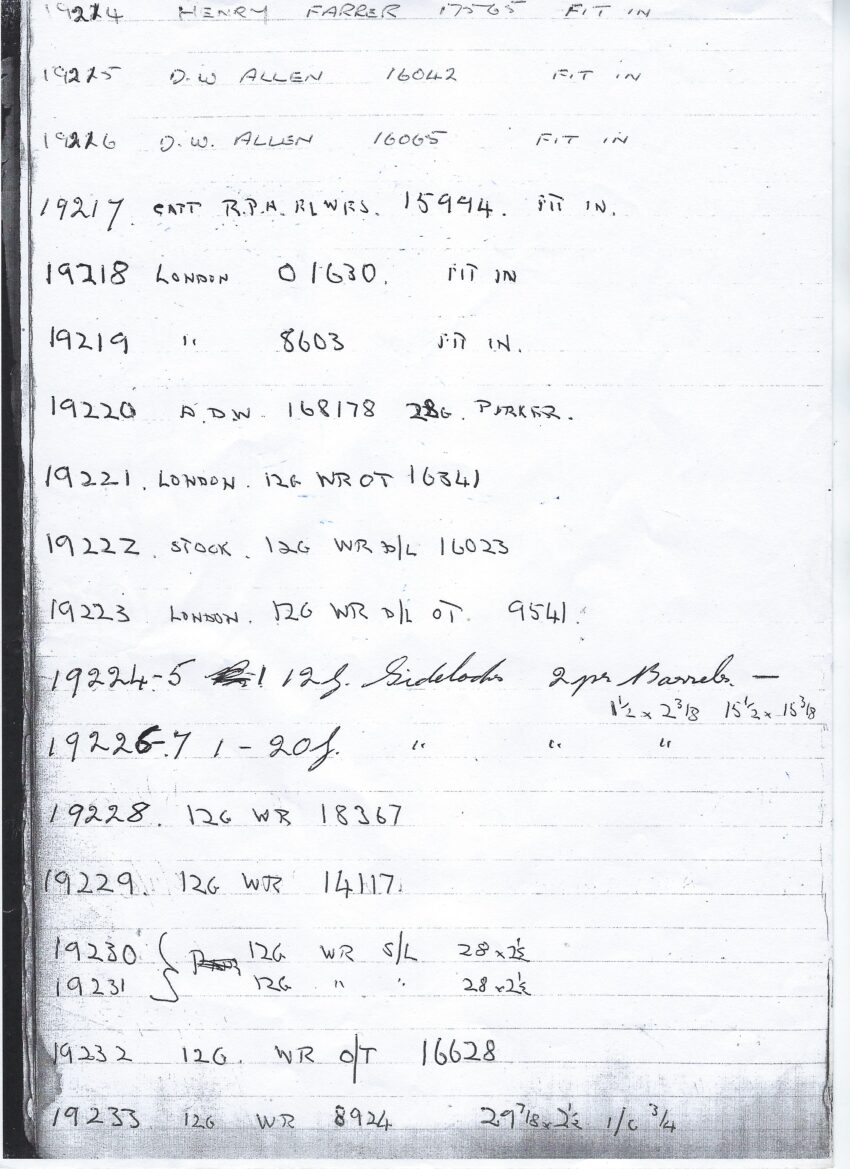 19214 HENRY FARRER 17565 FIT IN
19215 D.W ALLEN 16042 FIT IN
19216 D.W. ALLEN 16065 FIT IN
19217 CAPT R.P.H. 15994. FIT IN.
19218 LONDON 01630. FIT IN
19219 " 8603 FIT IN.
19220 A.D.W. 168178 28G. PARKER.
19221. LONDON. 12G WR OT 16341
19222. STOCK. 12G WR D/L 16023
19223 LONDON. 12G WR D/L OT. 9541.
19224-5 1 12g. Sidelocks 2 prs Barrels. —
1 1/2 x 2 3/8 15 1/2 x 15 3/8
19226-7 1 - 20g. " " "
19228. 12G WR 18367
19229. 12G WR 14117.
19230 { 12G WR S/L 28 x 2 1/2
19231 12G " " 28 x 2 1/2
19232 12G. WR O/T 16628
19233 12G WR 8924 29 7/8 x 2 1/2 1/C 3/4